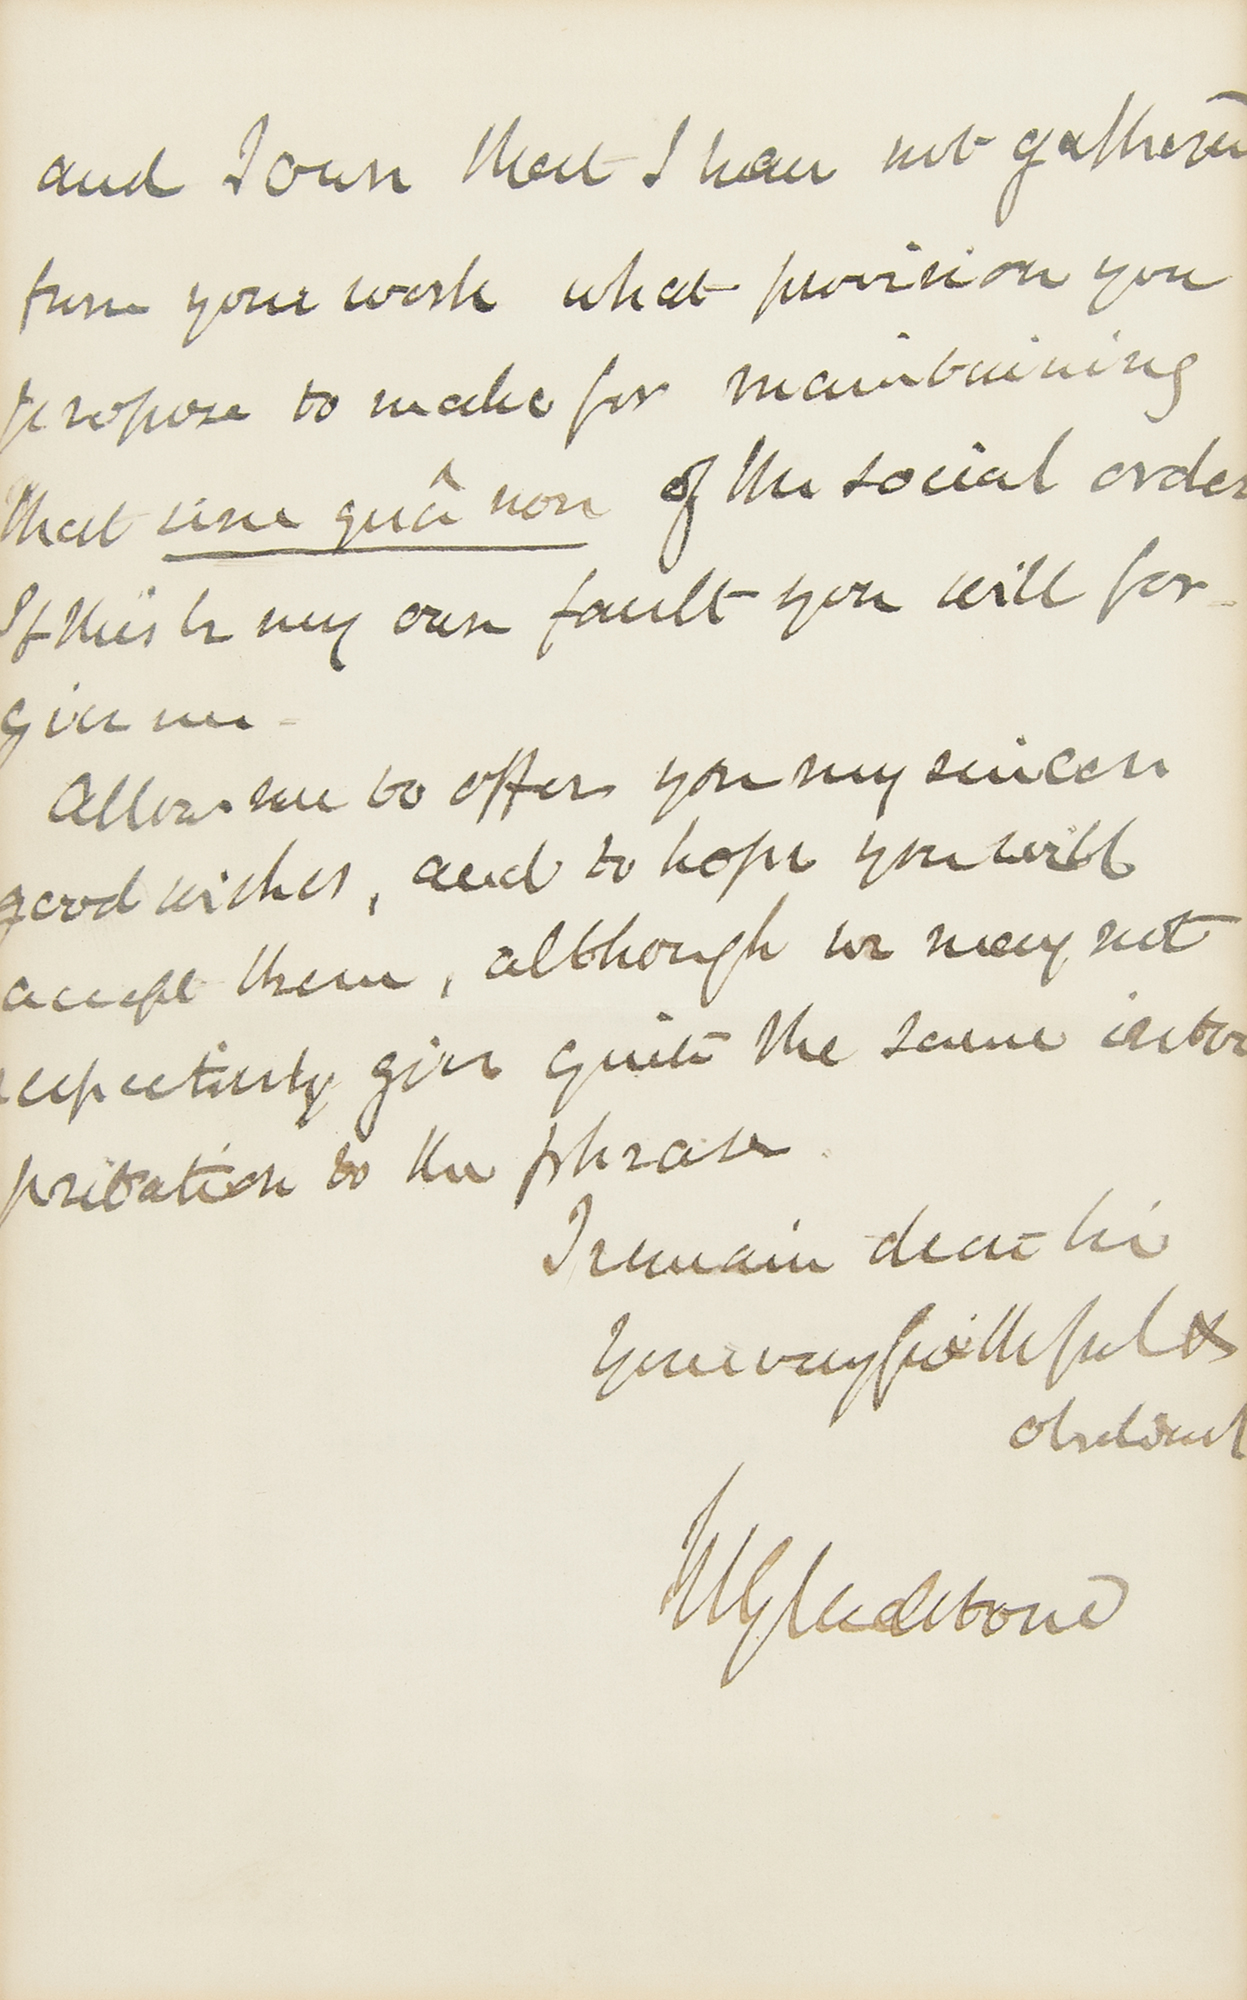 and I own that I have not gathered
from your work what provision you
propose to make for maintaining
that sine quâ non of the social order
If this be my own fault you will for-
give me -
Allow me to offer you my sincere
good wishes, and to hope you will
accept them, although we may not
respectively give quite the same inter
pretation to the phrase.
I remain dear Sir
Your very faithful &
obedient
WEGladstone